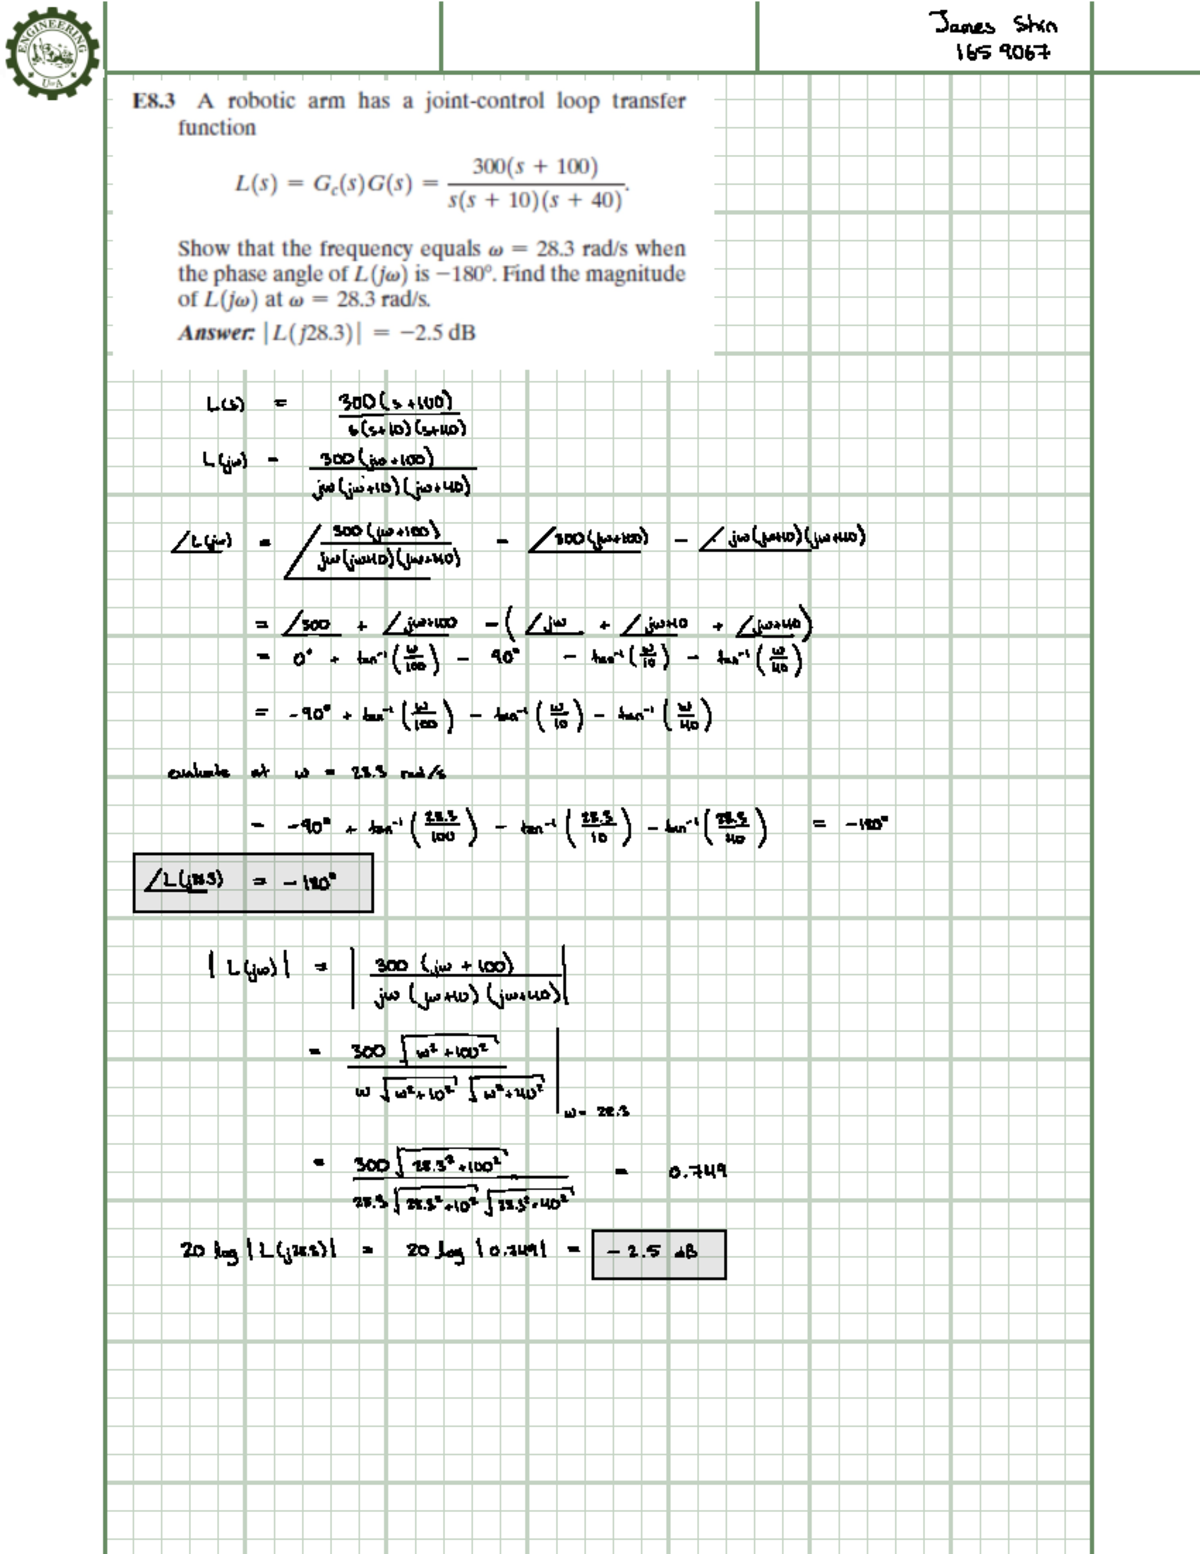 James Shin
165 9067
ENGINEERING
U of A
E8.3 A robotic arm has a joint-control loop transfer
function
L(s) = G_c(s)G(s) = 300(s + 100) / s(s + 10)(s + 40).
Show that the frequency equals ω = 28.3 rad/s when
the phase angle of L(jω) is −180°. Find the magnitude
of L(jω) at ω = 28.3 rad/s.
Answer: |L(j28.3)| = −2.5 dB
L(s) = 300(s+100) / s(s+10)(s+40)
L(jω) = 300(jω+100) / jω(jω+10)(jω+40)
∠L(jω) = ∠ 300(jω+100) / jω(jω+10)(jω+40) = ∠300(jω+100) − ∠jω(jω+10)(jω+40)
= ∠300 + ∠jω+100 − (∠jω + ∠jω+10 + ∠jω+40)
= 0° + tan⁻¹(ω/100) − 90° − tan⁻¹(ω/10) − tan⁻¹(ω/40)
= −90° + tan⁻¹(ω/100) − tan⁻¹(ω/10) − tan⁻¹(ω/40)
evaluate at ω = 28.3 rad/s
= −90° + tan⁻¹(28.3/100) − tan⁻¹(28.3/10) − tan⁻¹(28.3/40) = −180°
∠L(j28.3) = −180°
|L(jω)| = | 300 (jω + 100) / jω (jω+10) (jω+40) |
= 300 √(ω²+100²) / ω √(ω²+10²) √(ω²+40²) | ω = 28.3
= 300 √(28.3²+100²) / 28.3 √(28.3²+10²) √(28.3²+40²) = 0.749
20 log |L(j28.3)| = 20 log |0.749| = −2.5 dB